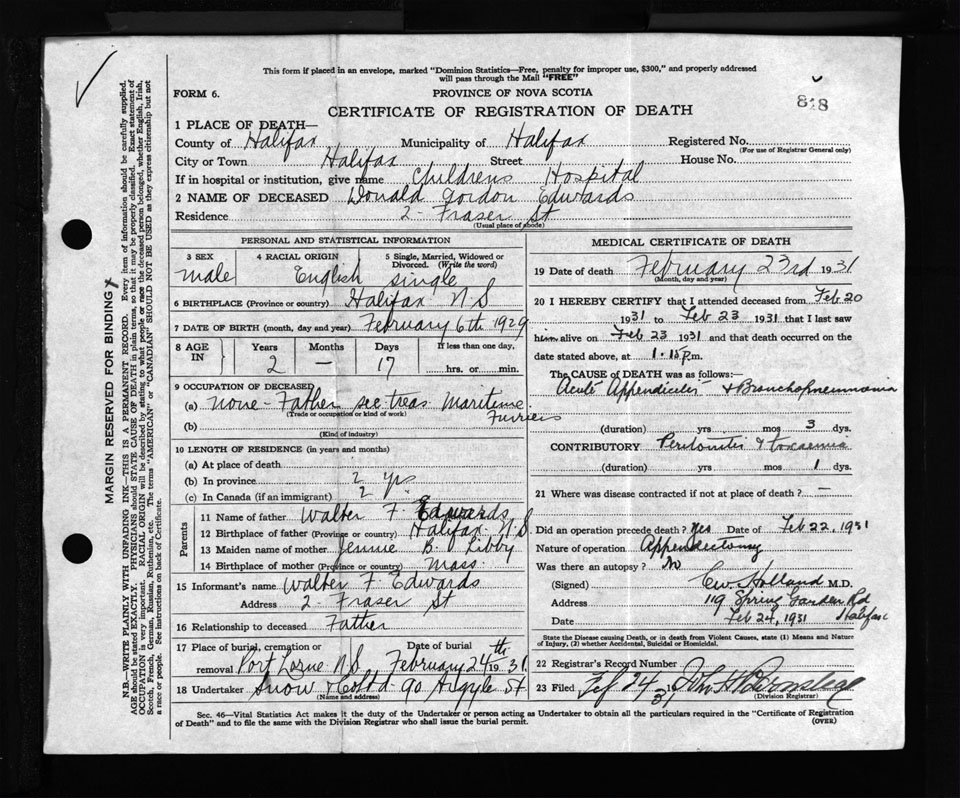 This form if placed in an envelope, marked "Dominion Statistics—Free, penalty for improper use, $300," and properly addressed
will pass through the Mail "FREE"
FORM 6.
PROVINCE OF NOVA SCOTIA
CERTIFICATE OF REGISTRATION OF DEATH
818
1 PLACE OF DEATH—
County of Halifax Municipality of Halifax Registered No.
(For use of Registrar General only)
City or Town Halifax Street House No.
If in hospital or institution, give name Childrens Hospital
2 NAME OF DECEASED Donald Gordon Edwards
Residence 2 - Fraser St
(Usual place of abode)
PERSONAL AND STATISTICAL INFORMATION
3 SEX 4 RACIAL ORIGIN 5 Single, Married, Widowed or
Divorced. (Write the word)
male English single
6 BIRTHPLACE (Province or country) Halifax N.S
7 DATE OF BIRTH (month, day and year) February 6th 1929
8 AGE IN Years Months Days If less than one day,
2 — 17 hrs. or min.
9 OCCUPATION OF DECEASED
(a) none - Father see treas. Maritime Furriers
(Trade or occupation or kind of work)
(b)
(Kind of industry)
10 LENGTH OF RESIDENCE (in years and months)
(a) At place of death
(b) In province 2 yrs
(c) In Canada (if an immigrant) 2 yrs
Parents
11 Name of father Walter F. Edwards
12 Birthplace of father (Province or country) Halifax N.S
13 Maiden name of mother Jennie B. Libby
14 Birthplace of mother (Province or country) Mass.
15 Informant's name Walter F. Edwards
Address 2 - Fraser St
16 Relationship to deceased Father
17 Place of burial, cremation or Date of burial
removal Port Lorne N.S. February 24th 1931
18 Undertaker Snow & Co Ltd 90 Argyle St.
(Name and address)
MEDICAL CERTIFICATE OF DEATH
19 Date of death February 23rd 1931
(Month, day and year)
20 I HEREBY CERTIFY that I attended deceased from Feb 20
1931 to Feb 23 1931 that I last saw
him alive on Feb 23 1931 and that death occurred on the
date stated above, at 1.15 P.m.
The CAUSE OF DEATH was as follows:
Acute Appendicitis & Bronchopneumonia
(duration) yrs mos 3 dys.
CONTRIBUTORY Peritonitis & toxaemia
(duration) yrs mos 1 dys.
21 Where was disease contracted if not at place of death? —
Did an operation precede death? Yes Date of Feb 22, 1931
Nature of operation Appendectomy
Was there an autopsy? No
(Signed) C.W. Holland M.D.
Address 119 Spring Garden Rd
Date Feb 24, 1931 Halifax
State the Disease causing Death, or in death from Violent Causes, state (1) Means and Nature
of Injury, (2) whether Accidental, Suicidal or Homicidal.
22 Registrar's Record Number
23 Filed Feb 24 1931 John H.
(Division Registrar)
Sec. 46—Vital Statistics Act makes it the duty of the Undertaker or person acting as Undertaker to obtain all the particulars required in the "Certificate of Registration
of Death" and to file the same with the Division Registrar who shall issue the burial permit. (OVER)
MARGIN RESERVED FOR BINDING
N.B.—WRITE PLAINLY WITH UNFADING INK—THIS IS A PERMANENT RECORD. Every item of information should be carefully supplied.
AGE should be stated EXACTLY. PHYSICIANS should STATE CAUSE OF DEATH in plain terms, so that it may be properly classified. Exact statement of
OCCUPATION is very important. RACIAL ORIGIN will be described by stating to what people or race the deceased person belonged, whether English, Irish,
Scotch, French, German, Russian, Ruthenian, etc. The terms "AMERICAN" or "CANADIAN" SHOULD NOT BE USED as they express citizenship but not
a race or people. See instructions on back of Certificate.